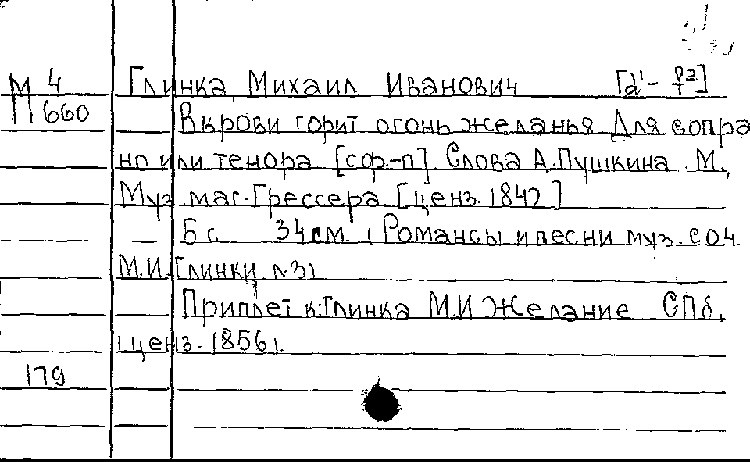 М 4 Глинка, Михаил Иванович
П 660 В крови горит огонь желанья Для сопра
но или тенора [сф-п]. Слова А.Пушкина. М.,
Муз маг. Грессера [ценз. 1842]
6 с. 34см. (Романсы и песни муз. соч.
М.И. Глинки, №3)
Приплет к: Глинка М.И Желание СПб,
ценз. 1856г.
179